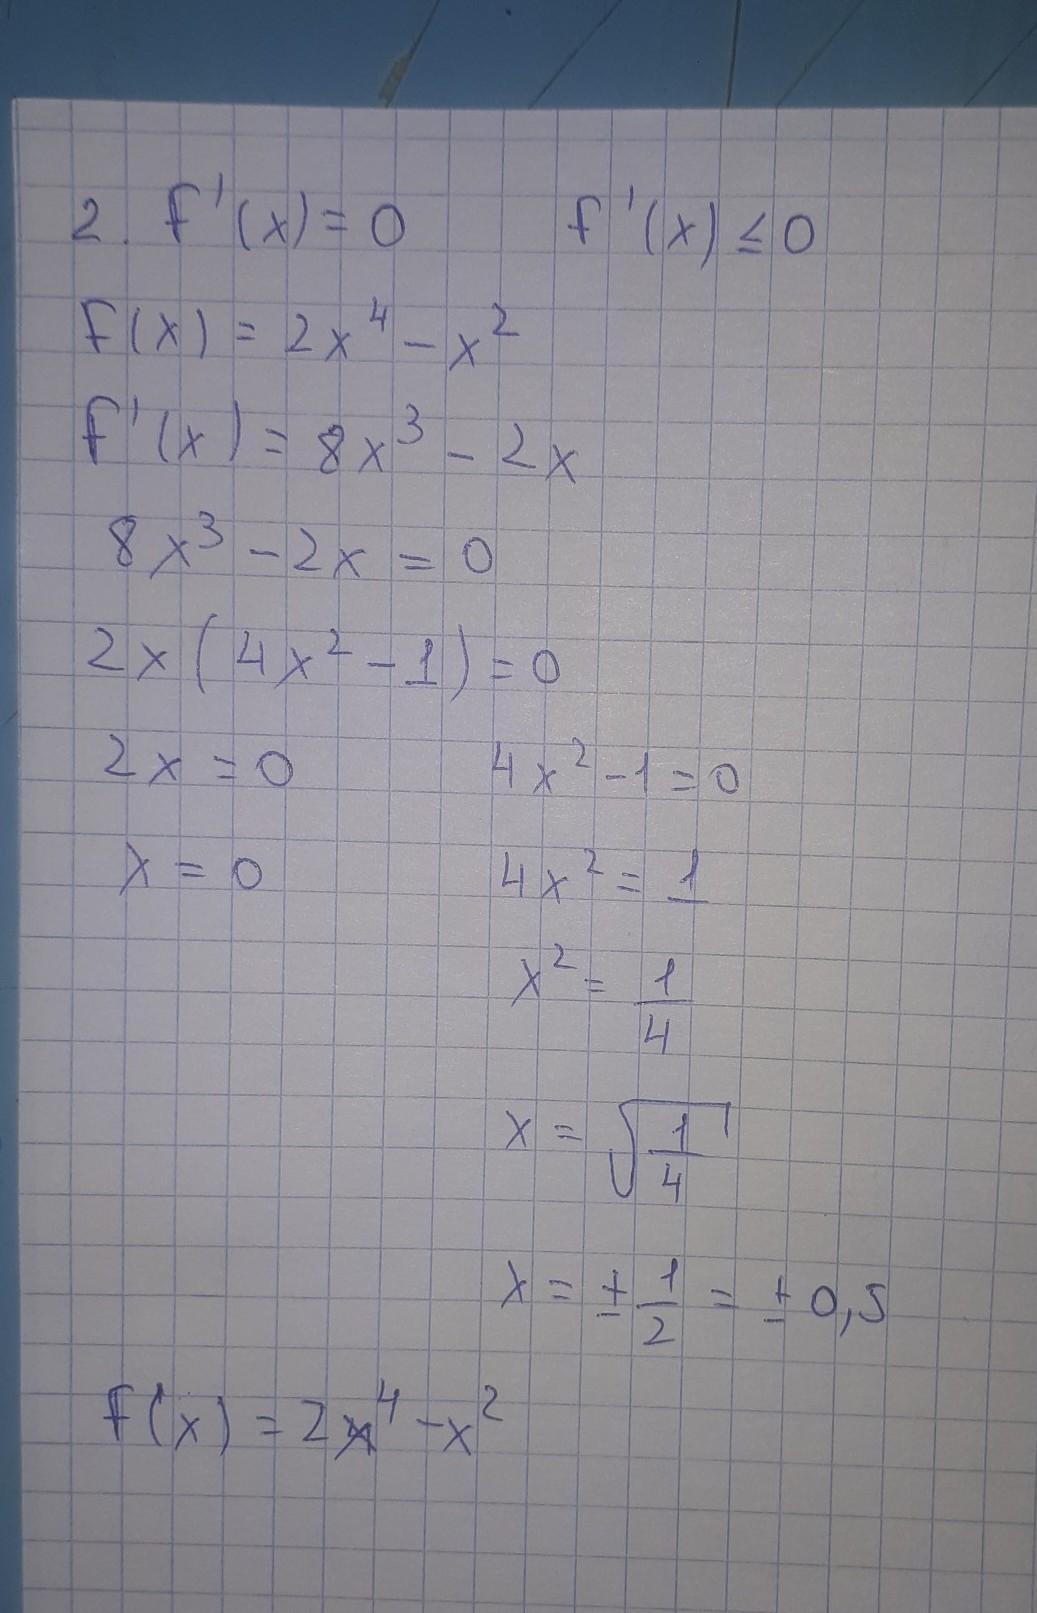 2. f'(x) = 0 f'(x) ≤ 0
f(x) = 2x⁴ - x²
f'(x) = 8x³ - 2x
8x³ - 2x = 0
2x(4x² - 1) = 0
2x = 0 4x² - 1 = 0
x = 0 4x² = 1
x² = 1/4
x = √(1/4)
x = ± 1/2 = ± 0,5
f(x) = 2x⁴ - x²